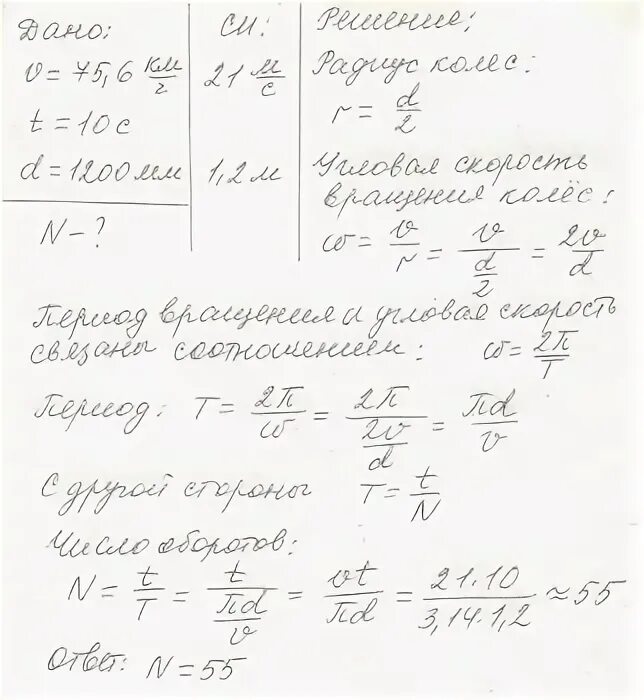 Дано:
v = 75,6 км/г
t = 10 с
d = 1200 мм
N – ?
СИ:
21 м/с
1,2 м
Решение:
Радиус колес:
r = d/2
Угловая скорость
вращения колёс:
ω = v/r = v/(d/2) = 2v/d
Период вращения и угловая скорость
связаны соотношением: ω = 2π/T
Период: T = 2π/ω = 2π/(2v/d) = πd/v
С другой стороны T = t/N
Число оборотов:
N = t/T = t/(πd/v) = vt/πd = 21·10/3,14·1,2 ≈ 55
Ответ: N = 55